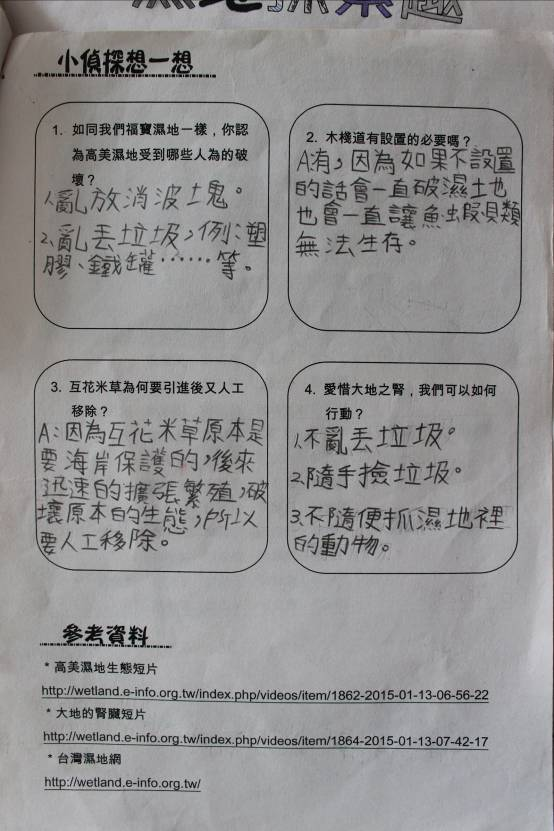 濕地探索趣
小偵探想一想
1. 如同我們福寶濕地一樣，你認
為高美濕地受到哪些人為的破
壞？
1.亂放消波土塊。
2.亂丟垃圾，例：塑
膠、鐵罐……等。
2. 木棧道有設置的必要嗎？
A:有，因為如果不設置
的話會一直破濕土也
也會一直讓魚蝦貝類
無法生存。
3. 互花米草為何要引進後又人工
移除？
A:因為互花米草原本是
要海岸保護的，後來
迅速的擴張繁殖，破
壞原本的生態，所以
要人工移除。
4. 愛惜大地之腎，我們可以如何
行動？
1.不亂丟垃圾。
2.隨手撿垃圾。
3.不隨便抓濕地裡
的動物。
參考資料
* 高美濕地生態短片
http://wetland.e-info.org.tw/index.php/videos/item/1862-2015-01-13-06-56-22
* 大地的腎臟短片
http://wetland.e-info.org.tw/index.php/videos/item/1864-2015-01-13-07-42-17
* 台灣濕地網
http://wetland.e-info.org.tw/